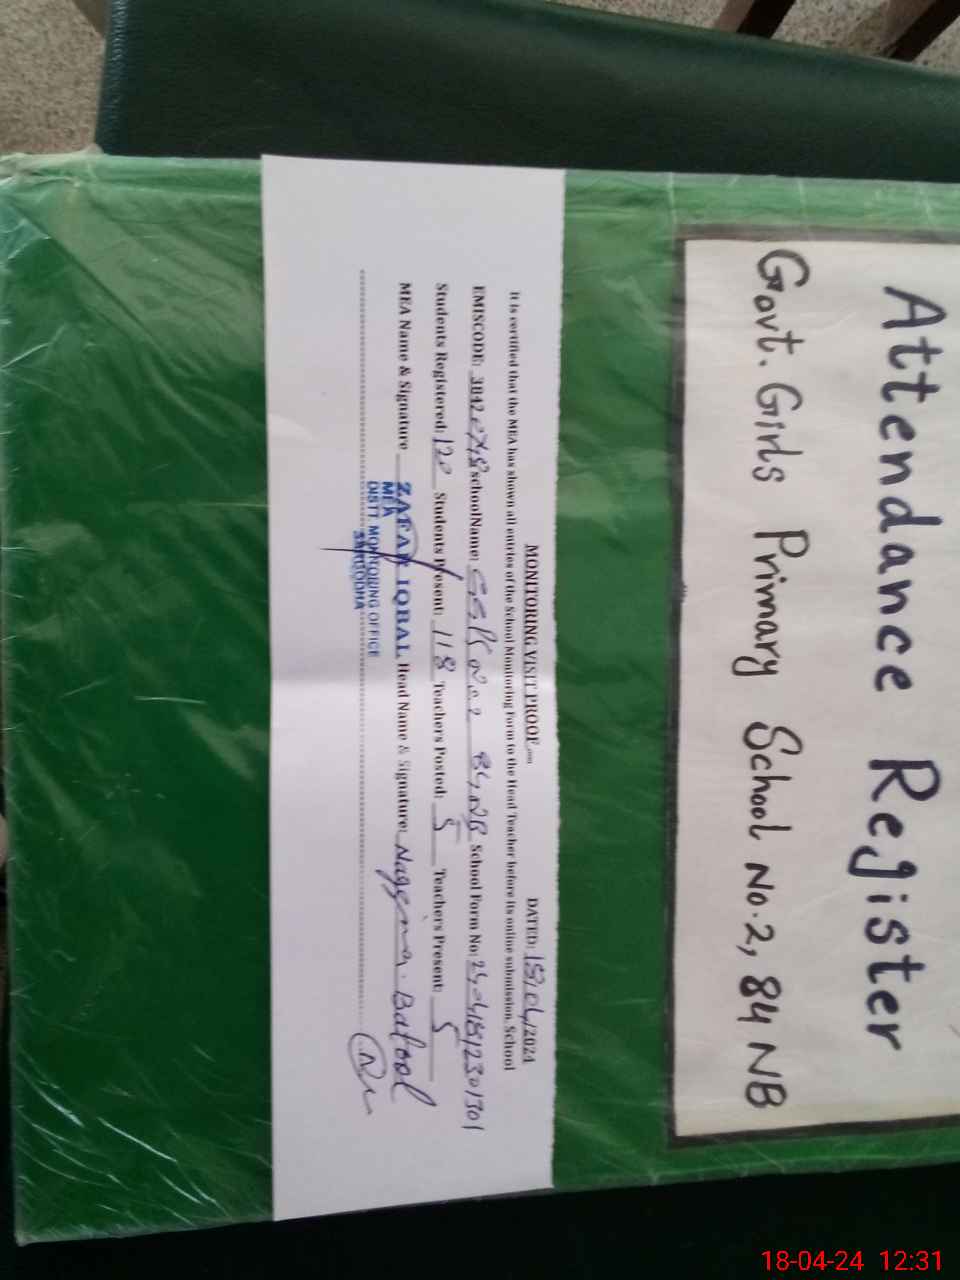 Attendance Register
Govt. Girls Primary School No. 2, 84 NB
MONITORING VISIT PROOF DATED: 18/04/2024
It is certified that the MEA has shown all entries of the School Monitoring Form to the Head Teacher before its online submission. School
EMISCODE: SchoolName: No. 2 84 NB School Form No:
Students Registered: 120 Students Present: 118 Teachers Posted: 5 Teachers Present: 5
MEA Name & Signature ZAFAR IQBAL Head Name & Signature: Nageena. Batool
MEA
DISTT. MONITORING OFFICE
SARGODHA
18-04-24 12:31